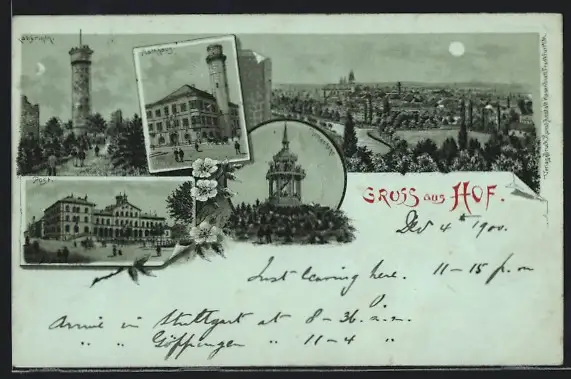 Labyrinth.
Rathhaus
GRUSS aus HOF.
Dec 4th 1900.
Just leaving here. 11-15 p.m
Arrive in Stuttgart at 8-36 a.m.
" " Göppingen " 11-4 "